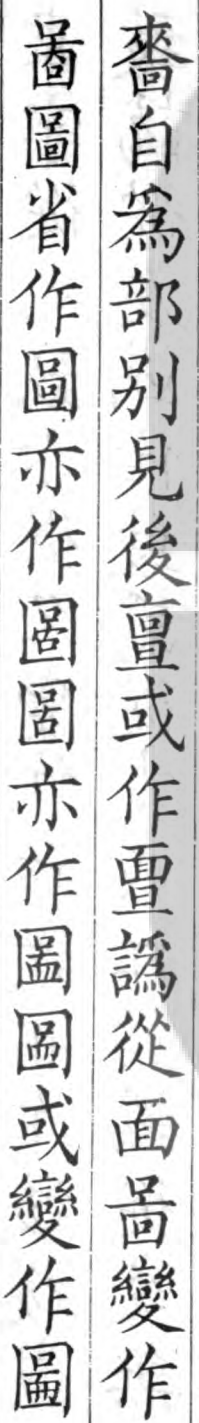 嗇自為部别見後亶或作䨷譌從面啚變作
啚圖省作圖亦作圖圖亦作圖圖或變作圖